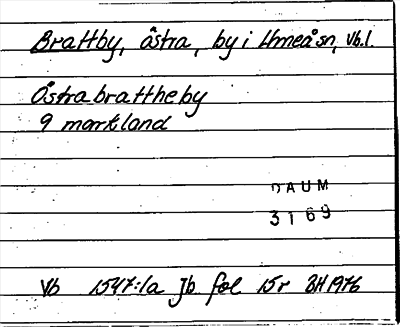 Brattby, östra, by i Umeå sn, Vb.l.
Östrabrattheby
9 markland
DAUM
3169
Vb 1547:1a Jb fol 15r BH 1976